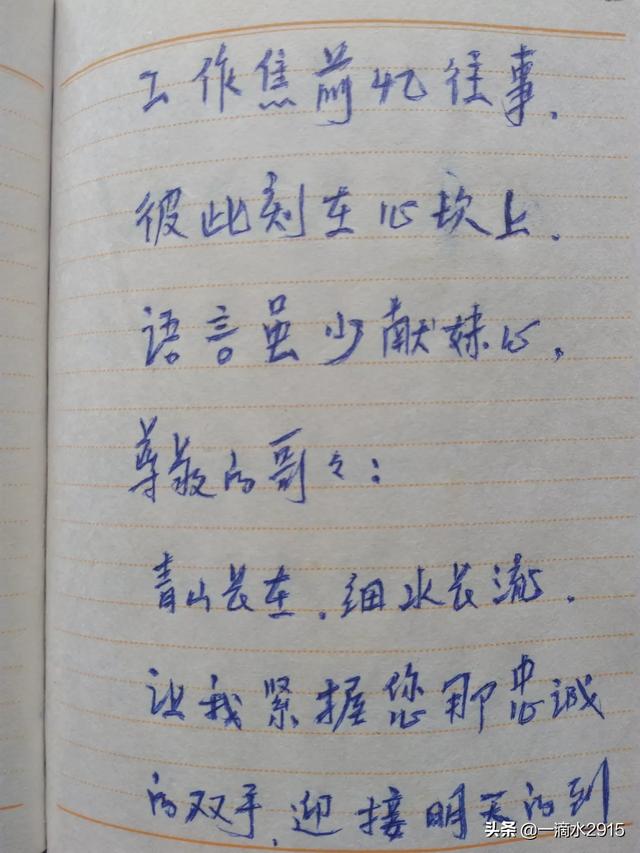 工作焦前忆往事.
彼此刻在心坎上.
语言虽少献妹心,
尊敬的哥々:
青山长在.细水长流.
让我紧握您那忠诚
的双手,迎接明天的到
头条@一滴水2915